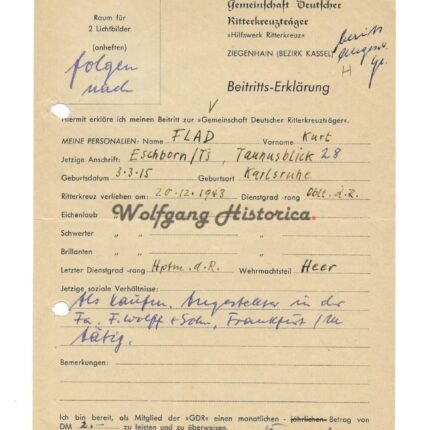 Raum für
2 Lichtbilder
(anheften)
folgen
nach
Gemeinschaft Deutscher
Ritterkreuzträger
»Hilfswerk Ritterkreuz«
ZIEGENHAIN (BEZIRK KASSEL)
bereits
H
Beitritts-Erklärung
Hiermit erkläre ich meinen Beitritt zur »Gemeinschaft Deutscher Ritterkreuzträger«.
MEINE PERSONALIEN: Name FLAD Vorname Kurt
Jetzige Anschrift: Eschborn/Ts, Taunusblick 28
Geburtsdatum 3.3.15 Geburtsort Karlsruhe
Ritterkreuz verliehen am: 20.12.1943 Dienstgrad -rang Oblt. d.R.
Wolfgang Historica.
Eichenlaub " "
Schwerter " "
Brillanten " "
Letzter Dienstgrad -rang Hptm. d. R. Wehrmachtsteil Heer
Jetzige soziale Verhältnisse:
Als kaufm. Angestellter in der
Fa. F. Wolff + Sohn, Frankfurt/M
tätig.
Bemerkungen:
Ich bin bereit, als Mitglied der »GDR« einen monatlichen - jährlichen - Betrag von
DM 2.- zu leisten und zu überweisen.